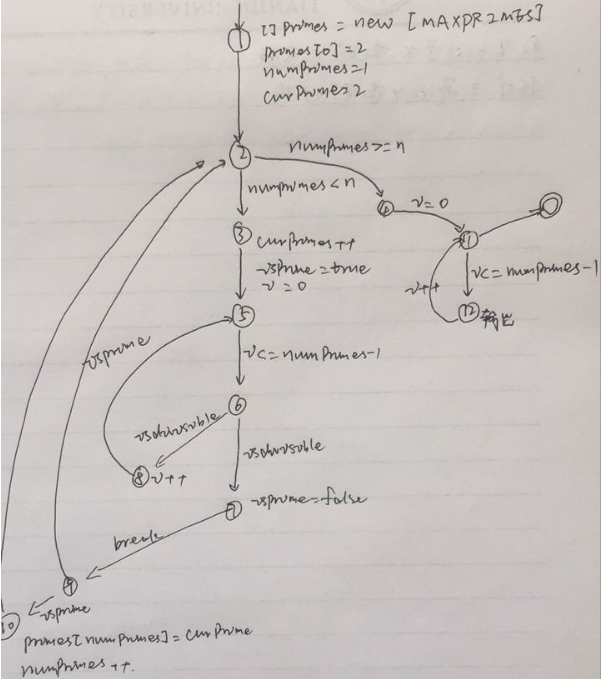 TIANJIN UNIVERSITY
[] primes = new [MAXPRIMES]
primes[0]=2
numPrimes=1
curPrime=2
1
2
numPrimes>=n
numPrimes<n
4
i=0
3
curPrimes++
isPrime=true
i=0
11
i++
i<=numPrimes-1
12
输出
5
isprime
i<=numPrimes-1
6
isdivisable
isdivisable
8
i++
7
isprime=false
break
9
isprime
10
primes[numPrimes]=curPrime
numPrimes++.